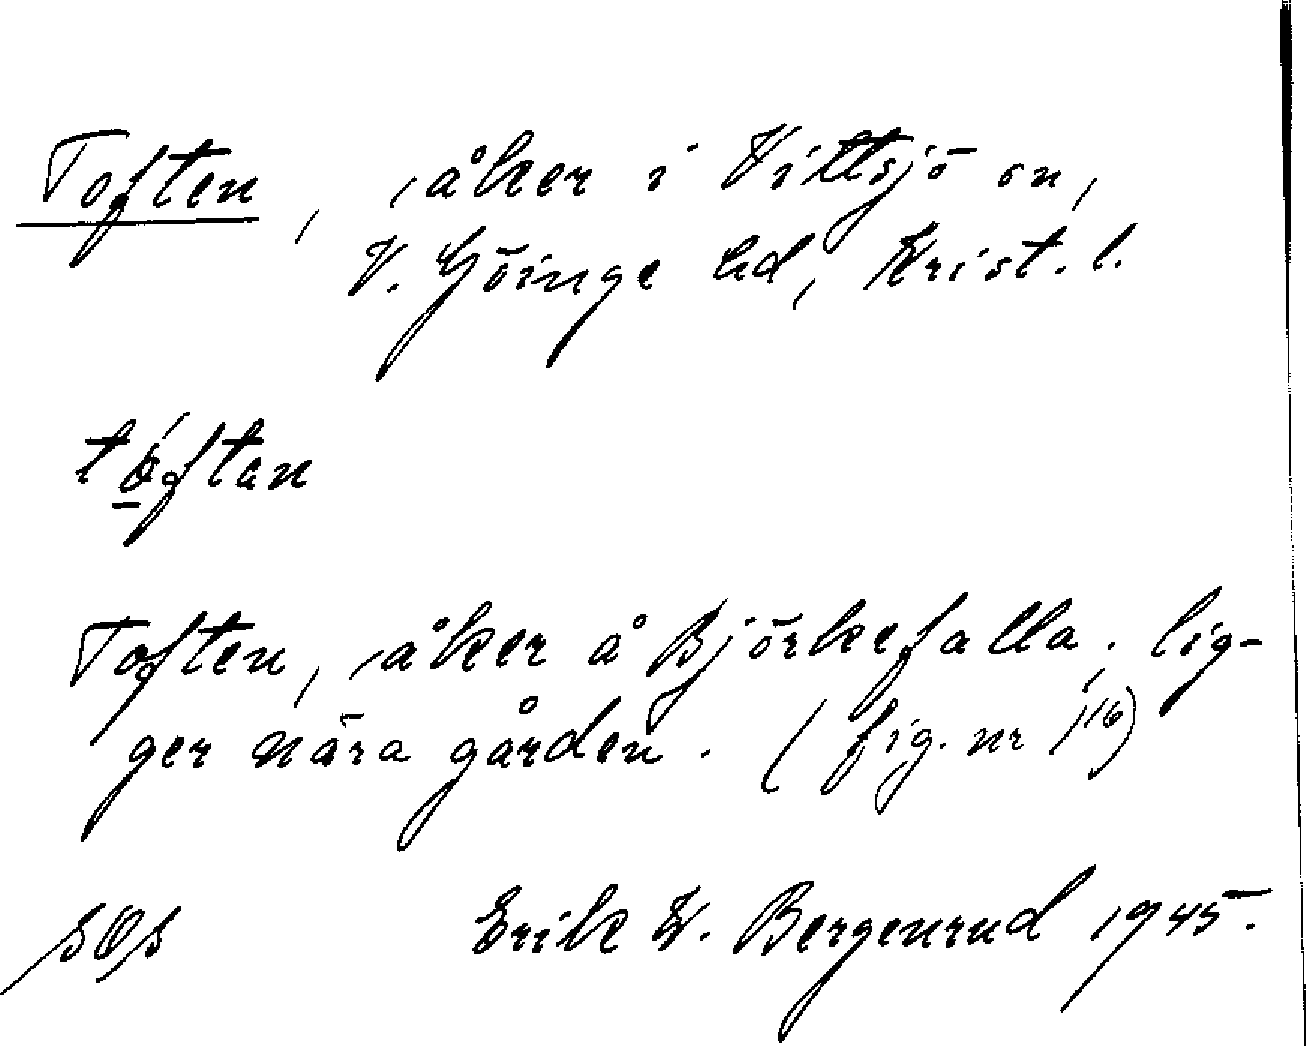 Toften, åker i Vittsjö sn,
V. Göinge hd, Krist. l.
tóftan
Toften, åker å Björkefalla, lig-
ger nära gården. (fig. nr 116)
SOS Erik W. Bergenrud 1945.